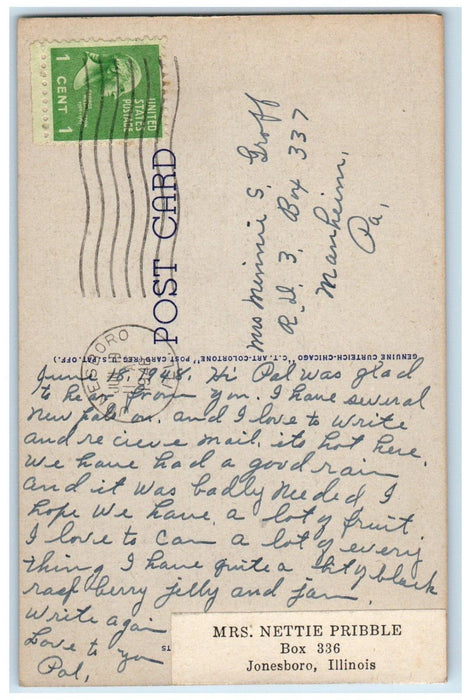 1 CENT 1
UNITED
STATES
POSTAGE
POST CARD
Mrs Minnie S. Groff
R.D. 3. Box 337
Manheim,
Pa,
GENUINE CURTEICH-CHICAGO "C.T. ART-COLORTONE" POST CARD (REG. U.S. PAT. OFF.)
ESBORO
June 18, 1948. Hi Pal was glad
to hear from you. I have several
new pals on. and I love to write
and recieve mail. its hot here.
We have had a good rain
and it was badly needed I
hope we have a lot of fruit
I love to can a lot of every
thing I have quite a bit of black
raspberry jelly and jam.
Write again
Love to you
Pal,
MRS. NETTIE PRIBBLE
Box 336
Jonesboro, Illinois